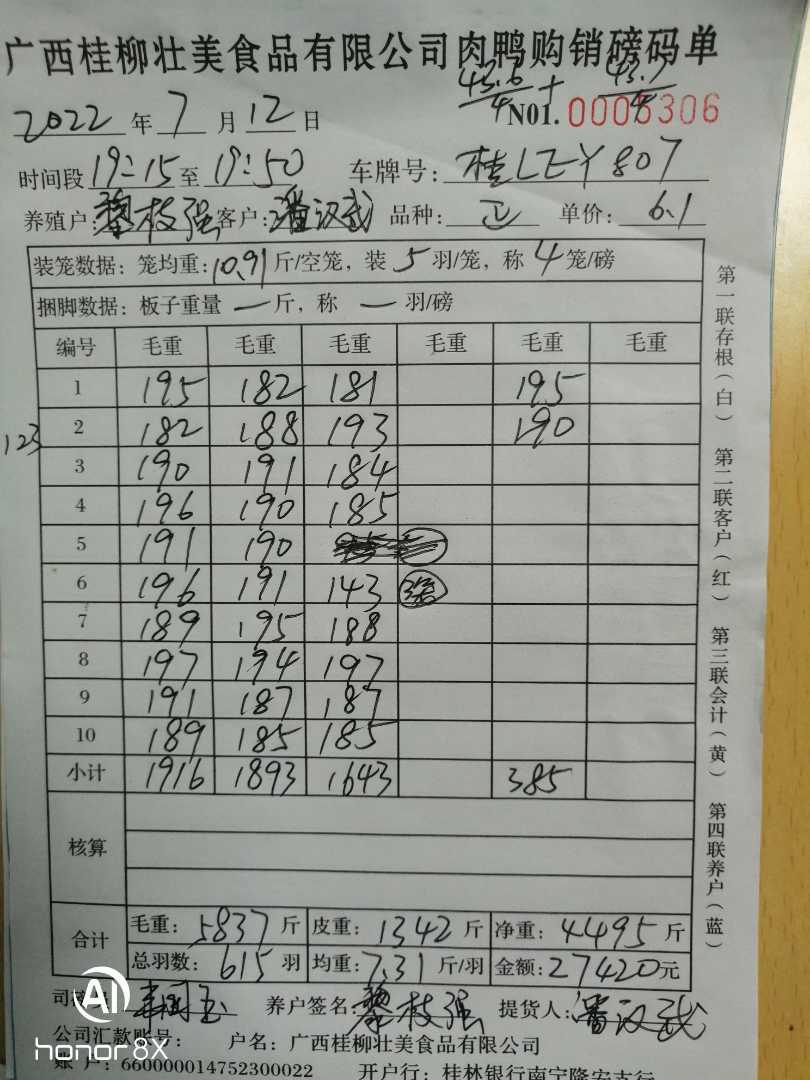 广西桂柳壮美食品有限公司肉鸭购销磅码单
43.6/4 + 43.7/4
2022 年 7 月 12 日 N01. 0006306
时间段 19:15 至 19:50 车牌号: 桂LZY807
养殖户: 黎枝强 客户: 潘汉武 品种: 单价: 6.1
装笼数据: 笼均重: 10.91 斤/空笼, 装 5 羽/笼, 称 4 笼/磅
捆脚数据: 板子重量 — 斤, 称 — 羽/磅
编号 毛重 毛重 毛重 毛重 毛重 毛重
1 195 182 181 195
2 182 188 193 190
123
3 190 191 184
4 196 190 185
5 191 190
6 196 191 143
7 189 195 188
8 197 194 197
9 191 187 187
10 189 185 185
小计 1916 1893 1643 385
核算
合计 毛重: 5837 斤 皮重: 1342 斤 净重: 4495 斤
总羽数: 615 羽 均重: 7.31 斤/羽 金额: 27420 元
养户签名: 黎枝强 提货人: 潘汉武
公司汇款账号: 户名: 广西桂柳壮美食品有限公司
账 户: 660000014752300022 开户行: 桂林银行南宁隆安支行
第一联存根(白) 第二联客户(红) 第三联会计(黄) 第四联养户(蓝)
AI
honor 8X